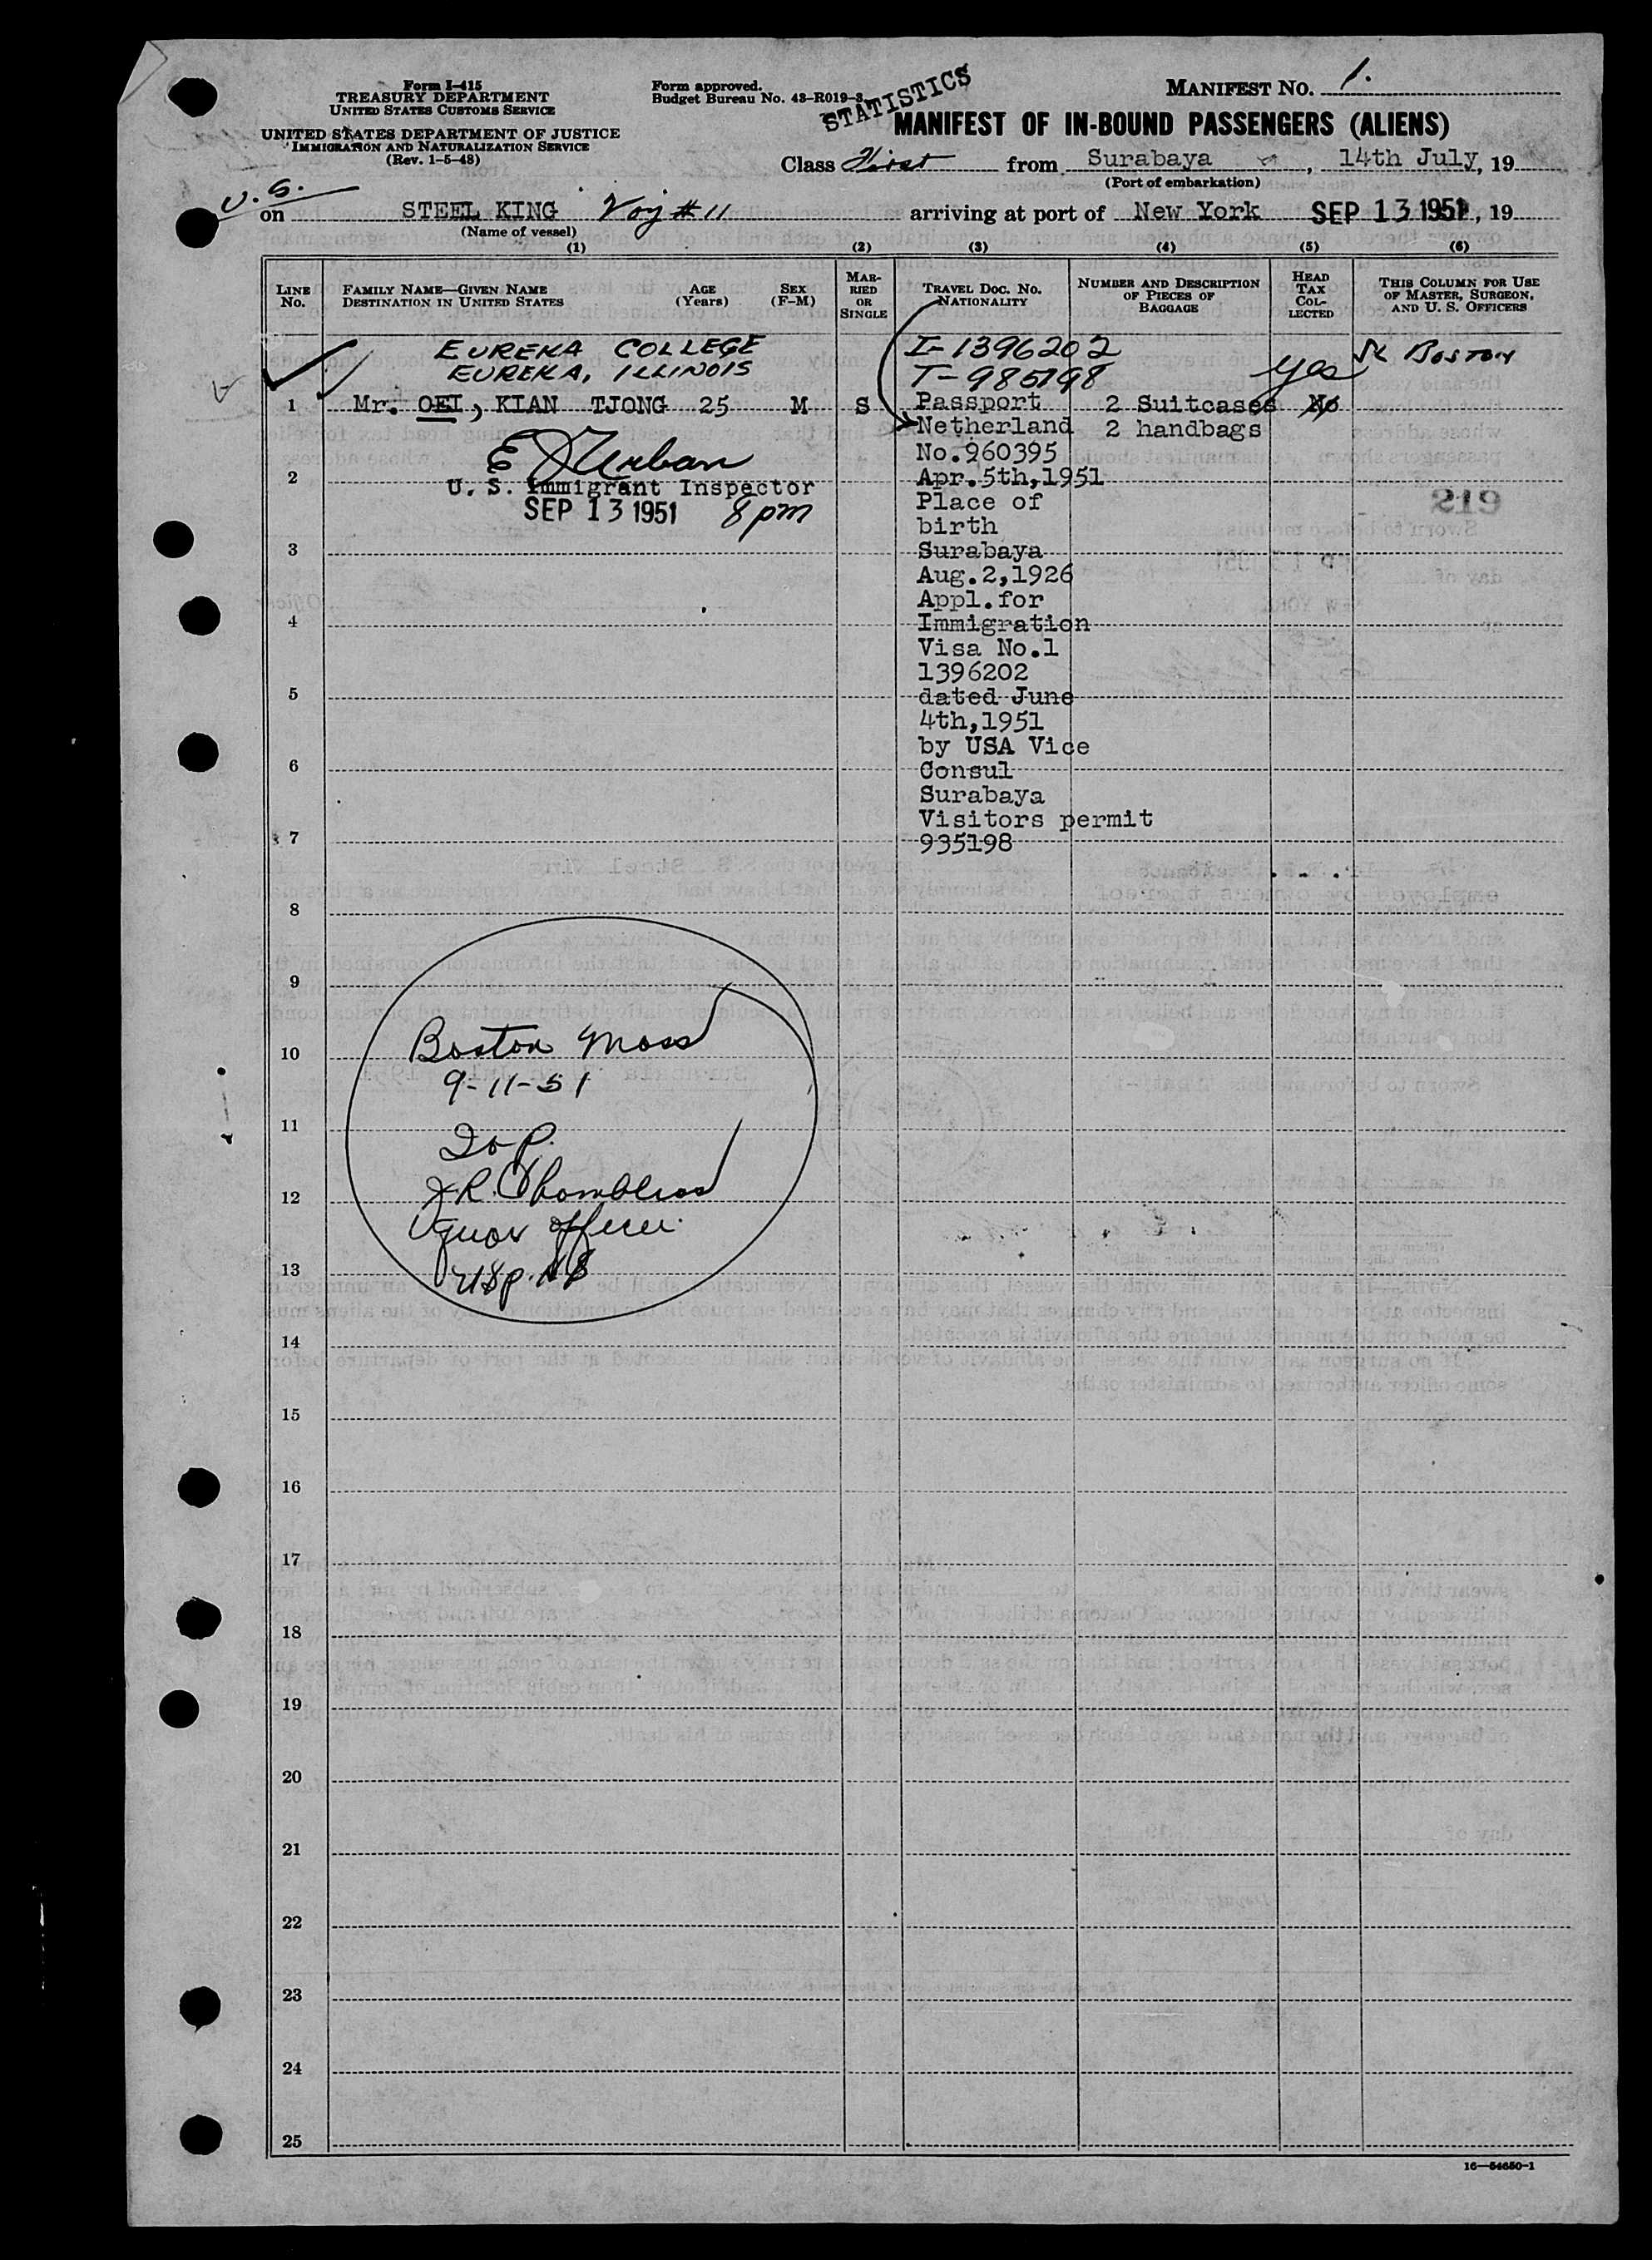 Form I-415
TREASURY DEPARTMENT
UNITED STATES CUSTOMS SERVICE
UNITED STATES DEPARTMENT OF JUSTICE
IMMIGRATION AND NATURALIZATION SERVICE
(Rev. 1-5-48)
Form approved.
Budget Bureau No. 43-R019-3.
STATISTICS
MANIFEST NO. 1.
MANIFEST OF IN-BOUND PASSENGERS (ALIENS)
Class First from Surabaya, 14th July, 19
(Port of embarkation)
on STEEL KING Voy # 11 arriving at port of New York SEP 13 1951, 19
(Name of vessel)
(1) (2) (3) (4) (5) (6)
LINE No. FAMILY NAME—GIVEN NAME DESTINATION IN UNITED STATES AGE (Years) SEX (F-M) MARRIED OR SINGLE TRAVEL DOC. NO. NATIONALITY NUMBER AND DESCRIPTION OF PIECES OF BAGGAGE HEAD TAX COLLECTED THIS COLUMN FOR USE OF MASTER, SURGEON, AND U. S. OFFICERS
EUREKA COLLEGE I-1396202
EUREKA, ILLINOIS T-985198 Yes BOSTON
1 Mr. OEI, KIAN TJONG 25 M S Passport 2 Suitcases No
Netherland 2 handbags
E Urban No.960395
2 U. S. Immigrant Inspector Apr.5th,1951
SEP 13 1951 8 pm Place of
birth
219
3 Surabaya
Aug.2,1926
Appl.for
4 Immigration
Visa No.1
1396202
5 dated June
4th,1951
by USA Vice
6 Consul
Surabaya
Visitors permit
7 935198
8
9
10 Boston Mass
9-11-51
11
12 J.R. Chambless
13
14
15
16
17
18
19
20
21
22
23
24
25
16—54650-1